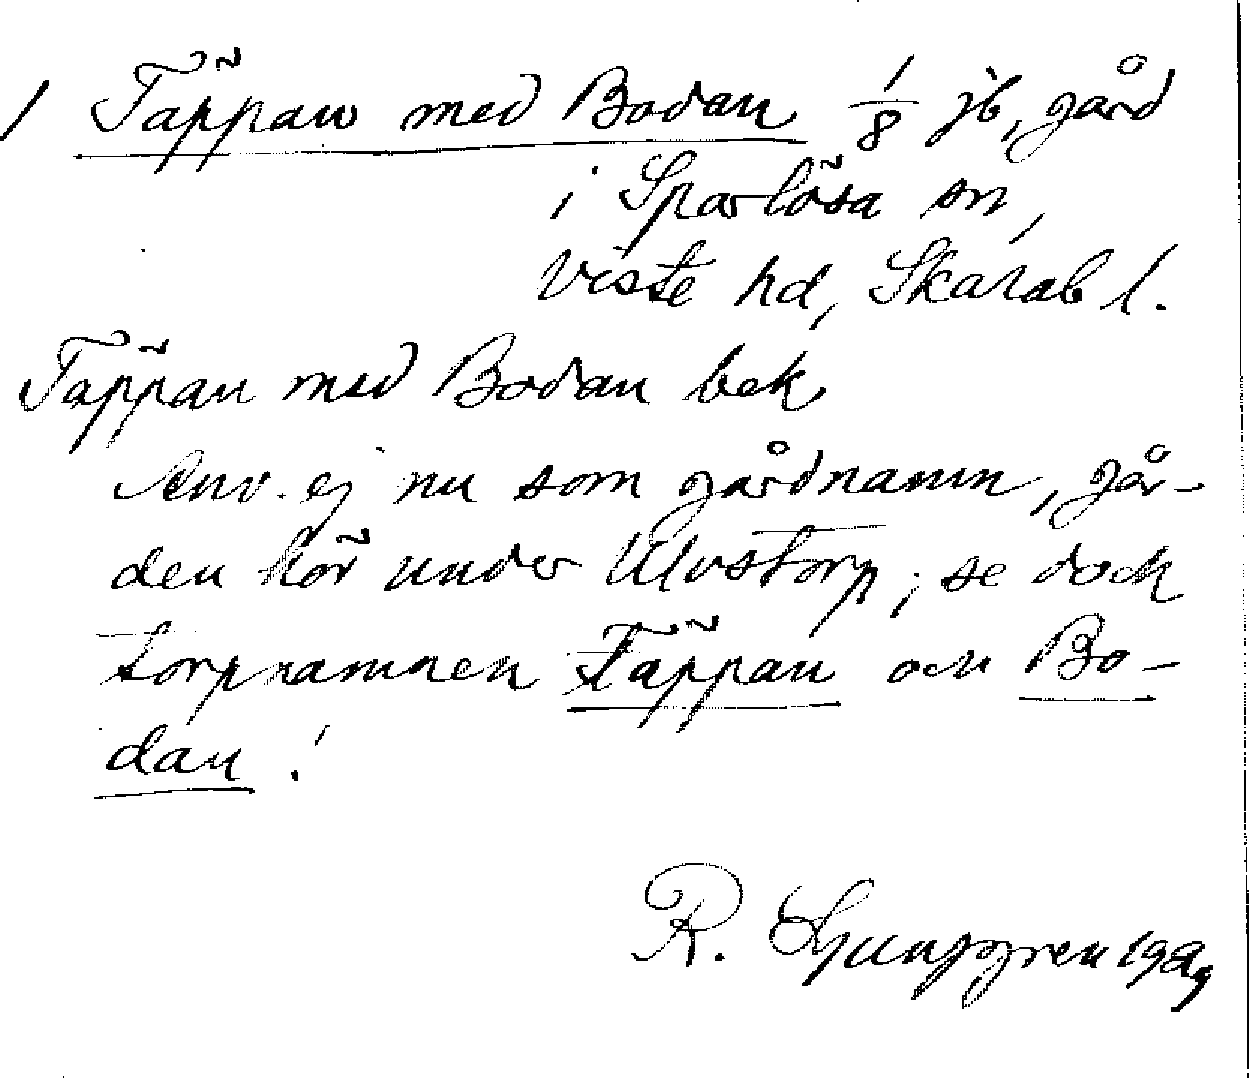 / Täppan med Bodan 1/8 jb, gård
i Sparlösa sn,
Viste hd, Skarab l.
Täppan med Bodan bek.
Anv. ej nu som gårdnamn, går-
den hör under Ulvstorp; se dock
torpnamnen Täppan och Bo-
dan!
R. Ljunggren